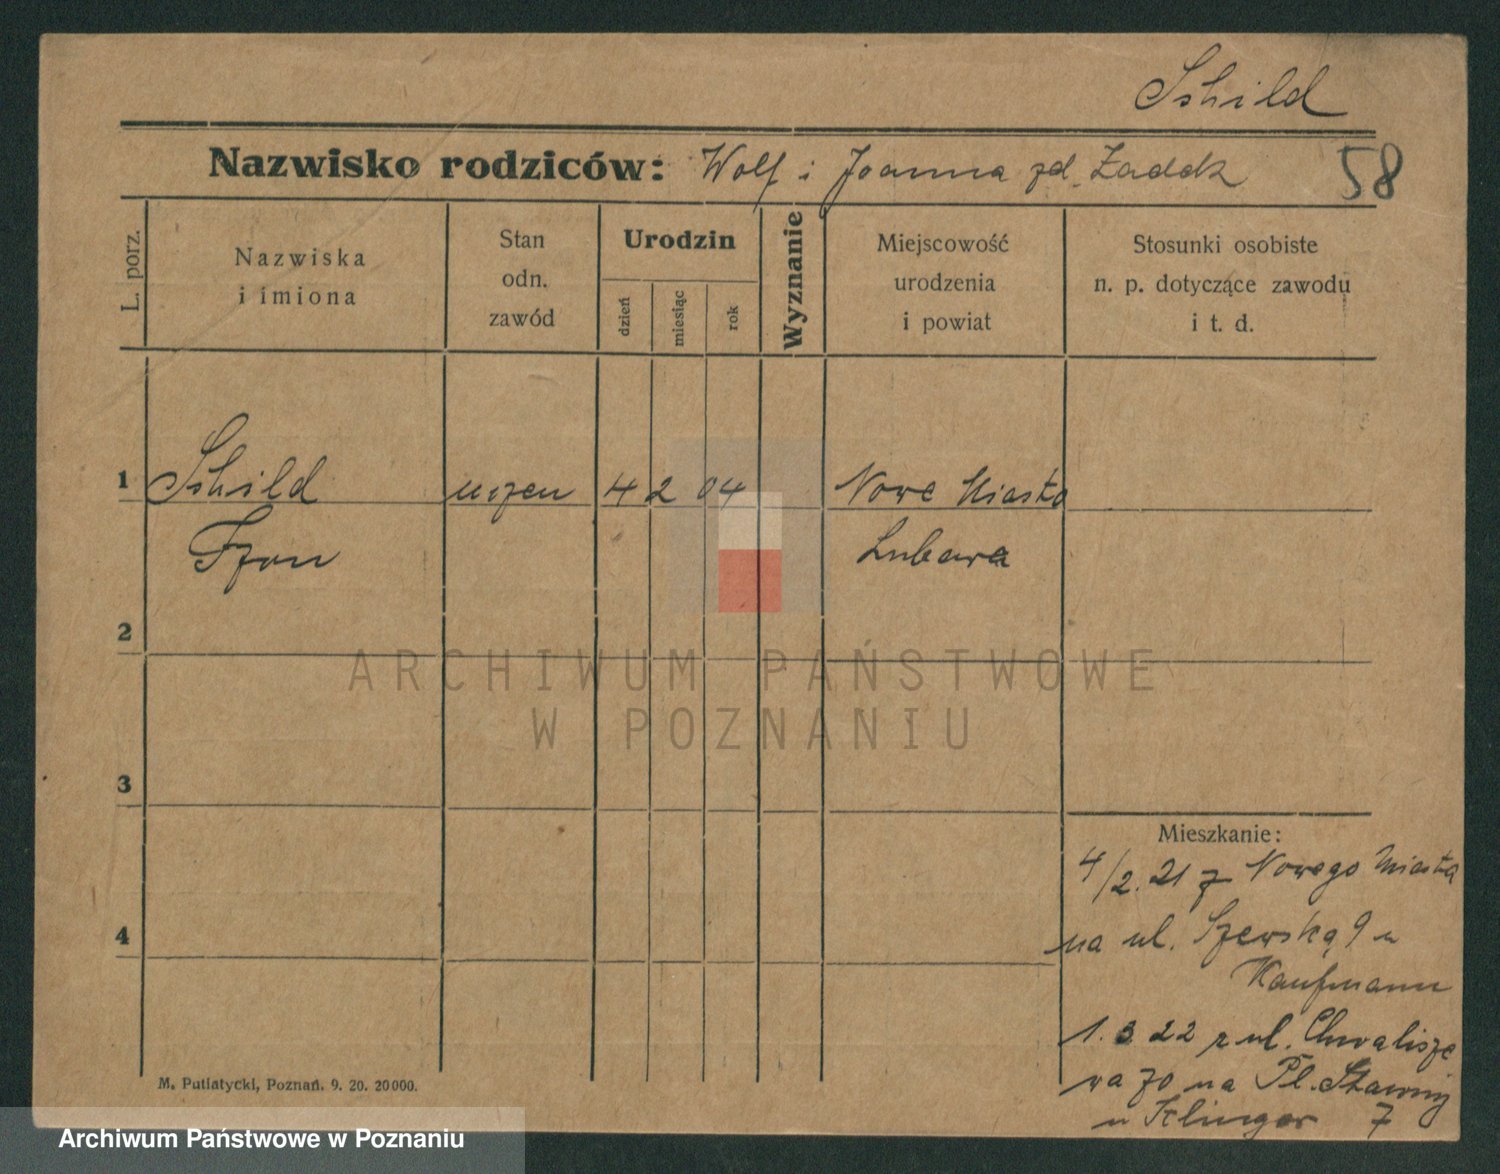 Schild
Nazwisko rodziców: Wolf i Joanna zd. Zadek
58
L. porz.
Nazwiska
i imiona
Stan
odn.
zawód
Urodzin
dzień
miesiąc
rok
Wyznanie
Miejscowość
urodzenia
i powiat
Stosunki osobiste
n. p. dotyczące zawodu
i t. d.
1 Schild uczeń 4 2 04 Nowe Miasto
Lubawa
2
ARCHIWUM PAŃSTWOWE
W POZNANIU
3
Mieszkanie:
4/2.21 z Nowego Miasta
4
na ul. Szewską 9 u
Kaufmann
1.3.22 z ul. Chwalisze
wa 70 na Pl. Stawny
u Klinger 7
M. Putiatycki, Poznań. 9. 20. 20000.
Archiwum Państwowe w Poznaniu